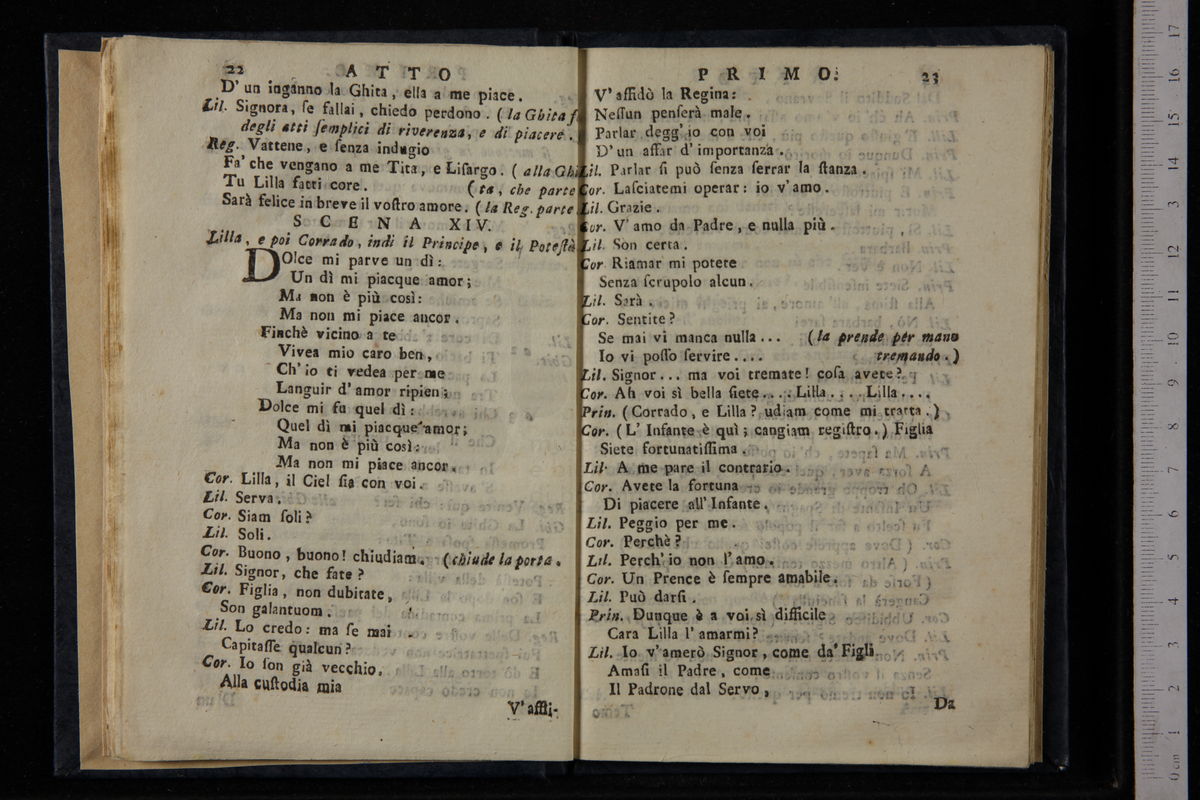 22 ATTO
D' un inganno la Ghita, ella a me piace.
Lil. Signora, ſe fallai, chiedo perdono. (la Ghita f
degli atti ſemplici di riverenza, e di piacere.
Reg. Vattene, e ſenza indugio
Fa' che vengano a me Tita, e Liſargo. (alla Ghi
Tu Lilla fatti core. (ta, che parte
Sarà felice in breve il voſtro amore. (la Reg. parte.
SCENA XIV.
Lilla, e poi Corrado, indi il Principe, e il Poteſtà
DOlce mi parve un dì:
Un dì mi piacque amor;
Ma non è più così:
Ma non mi piace ancor.
Finchè vicino a te
Vivea mio caro ben,
Ch' io ti vedea per me
Languir d' amor ripien;
Dolce mi fu quel dì:
Quel dì mi piacque amor;
Ma non è più così:
Ma non mi piace ancor.
Cor. Lilla, il Ciel ſia con voi.
Lil. Serva.
Cor. Siam ſoli?
Lil. Soli.
Cor. Buono, buono! chiudiam. (chiude la porta.
Lil. Signor, che fate?
Cor. Figlia, non dubitate,
Son galantuom.
Lil. Lo credo: ma ſe mai
Capitaſſe qualcun?
Cor. Io ſon già vecchio.
Alla cuſtodia mia
V' affi-
PRIMO. 23
V' affidò la Regina:
Neſſun penſerà male.
Parlar degg' io con voi
D' un affar d' importanza.
Lil. Parlar ſi può ſenza ſerrar la ſtanza.
Cor. Laſciatemi operar: io v' amo.
Lil. Grazie.
Cor. V' amo da Padre, e nulla più.
Lil. Son certa.
Cor Riamar mi potete
Senza ſcrupolo alcun.
Lil. Sarà.
Cor. Sentite?
Se mai vi manca nulla... (la prende per mano
Io vi poſſo ſervire.... tremando.)
Lil. Signor... ma voi tremate! coſa avete?
Cor. Ah voi sì bella ſiete.... Lilla.... Lilla....
Prin. (Corrado, e Lilla? udiam come mi tratta.)
Cor. (L' Infante è quì; cangiam regiſtro.) Figlia
Siete fortunatiſſima.
Lil. A me pare il contrario.
Cor. Avete la fortuna
Di piacere all' Infante.
Lil. Peggio per me.
Cor. Perchè?
Lil. Perch' io non l' amo.
Cor. Un Prence è ſempre amabile.
Lil. Può darſi.
Prin. Dunque è a voi sì difficile
Cara Lilla l' amarmi?
Lil. Io v' amerò Signor, come da' Figli
Amaſi il Padre, come
Il Padrone dal Servo,
Da